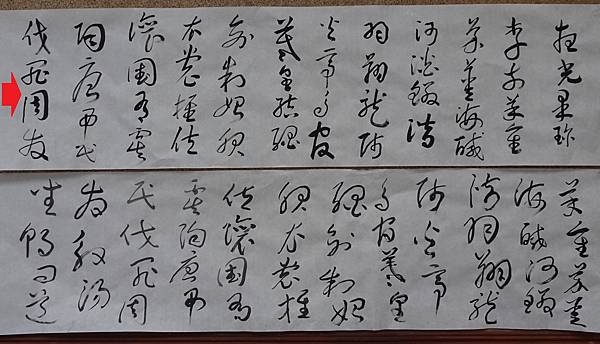 夜光果珍
李柰菜重
芥薑海鹹
河淡鱗潛
羽翔龍師
火帝鳥官
皇
制服
衣裳推位
讓國有虞
陶唐弔民
伐罪周發
菜重芥薑
海鹹河鱗
潛羽翔龍
師火帝
鳥官皇
制
服衣裳推
位讓國有
虞陶唐弔
民伐罪周
發殷湯
坐朝問道